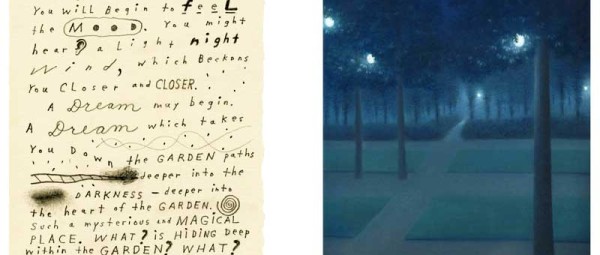 You will Begin to feeL
the MOOD. You might
hear a Light night
Wind, which Beckons
You CLoser and CLOSER.
A Dream may begin.
A Dream which takes
You Down the GARDEN paths
deeper into the
DARKNESS – deeper into
the heart of the GARDEN.
Such a mysterious and MAGICAL
PLACE. WHAT? is HiDiNG Deep
within the GARDEN? WHAT?